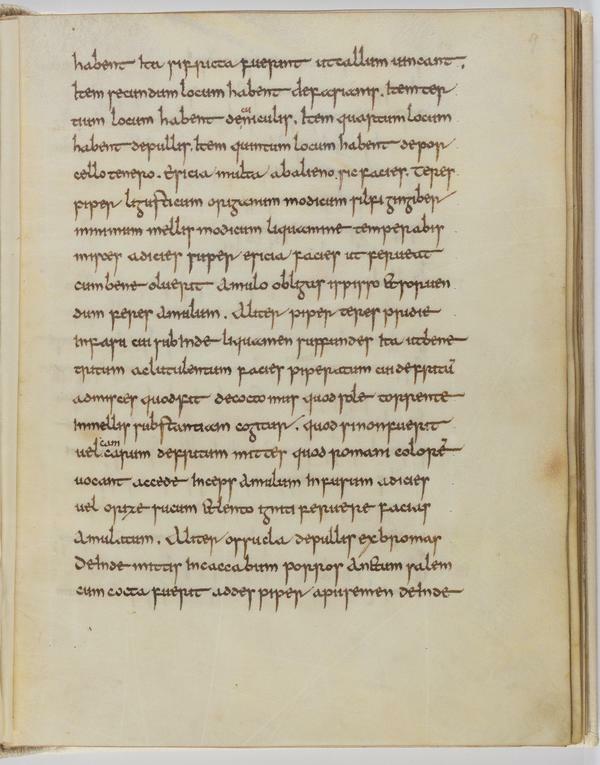 habent Ita sifricta fuerint utcallum uincant.
Item secundum locum habent defasianis. Item ter
tium locum habent decuniculis. Item quartum locum
habent depullis. Item quintum locum habent depor
cello tenero. Esicia multa abalieno. sic facies. Teres
piper ligusticum origanum modicum silfi gingiber
minimum mellis modicum liquamine temperabis
misces adicies super esicia facies ut ferueat
cum bene oluerit Amulo obligas ispisso & soruen
dum feres Amulum. Aliter piper teres pridie
cui subInde liquamen suffundes Ita utbene
tritum aclutulentum facies piperatum cui defritū
admisces quodfit decocto mus quod sole torrente
Inmellis substantiam cogitur. quod sinonfuerit
uel cam carum defritum mittes quod romani colorē
uocant accede Inceps Amulum Infusum adicies
uel orize sucum & lento igniti feruere facias
Amulatum. Aliter ossucla depullis exbromas
deInde mittis Incaccabum porros An&um salem
cum cocta fuerit addes piper apiisemen deInde